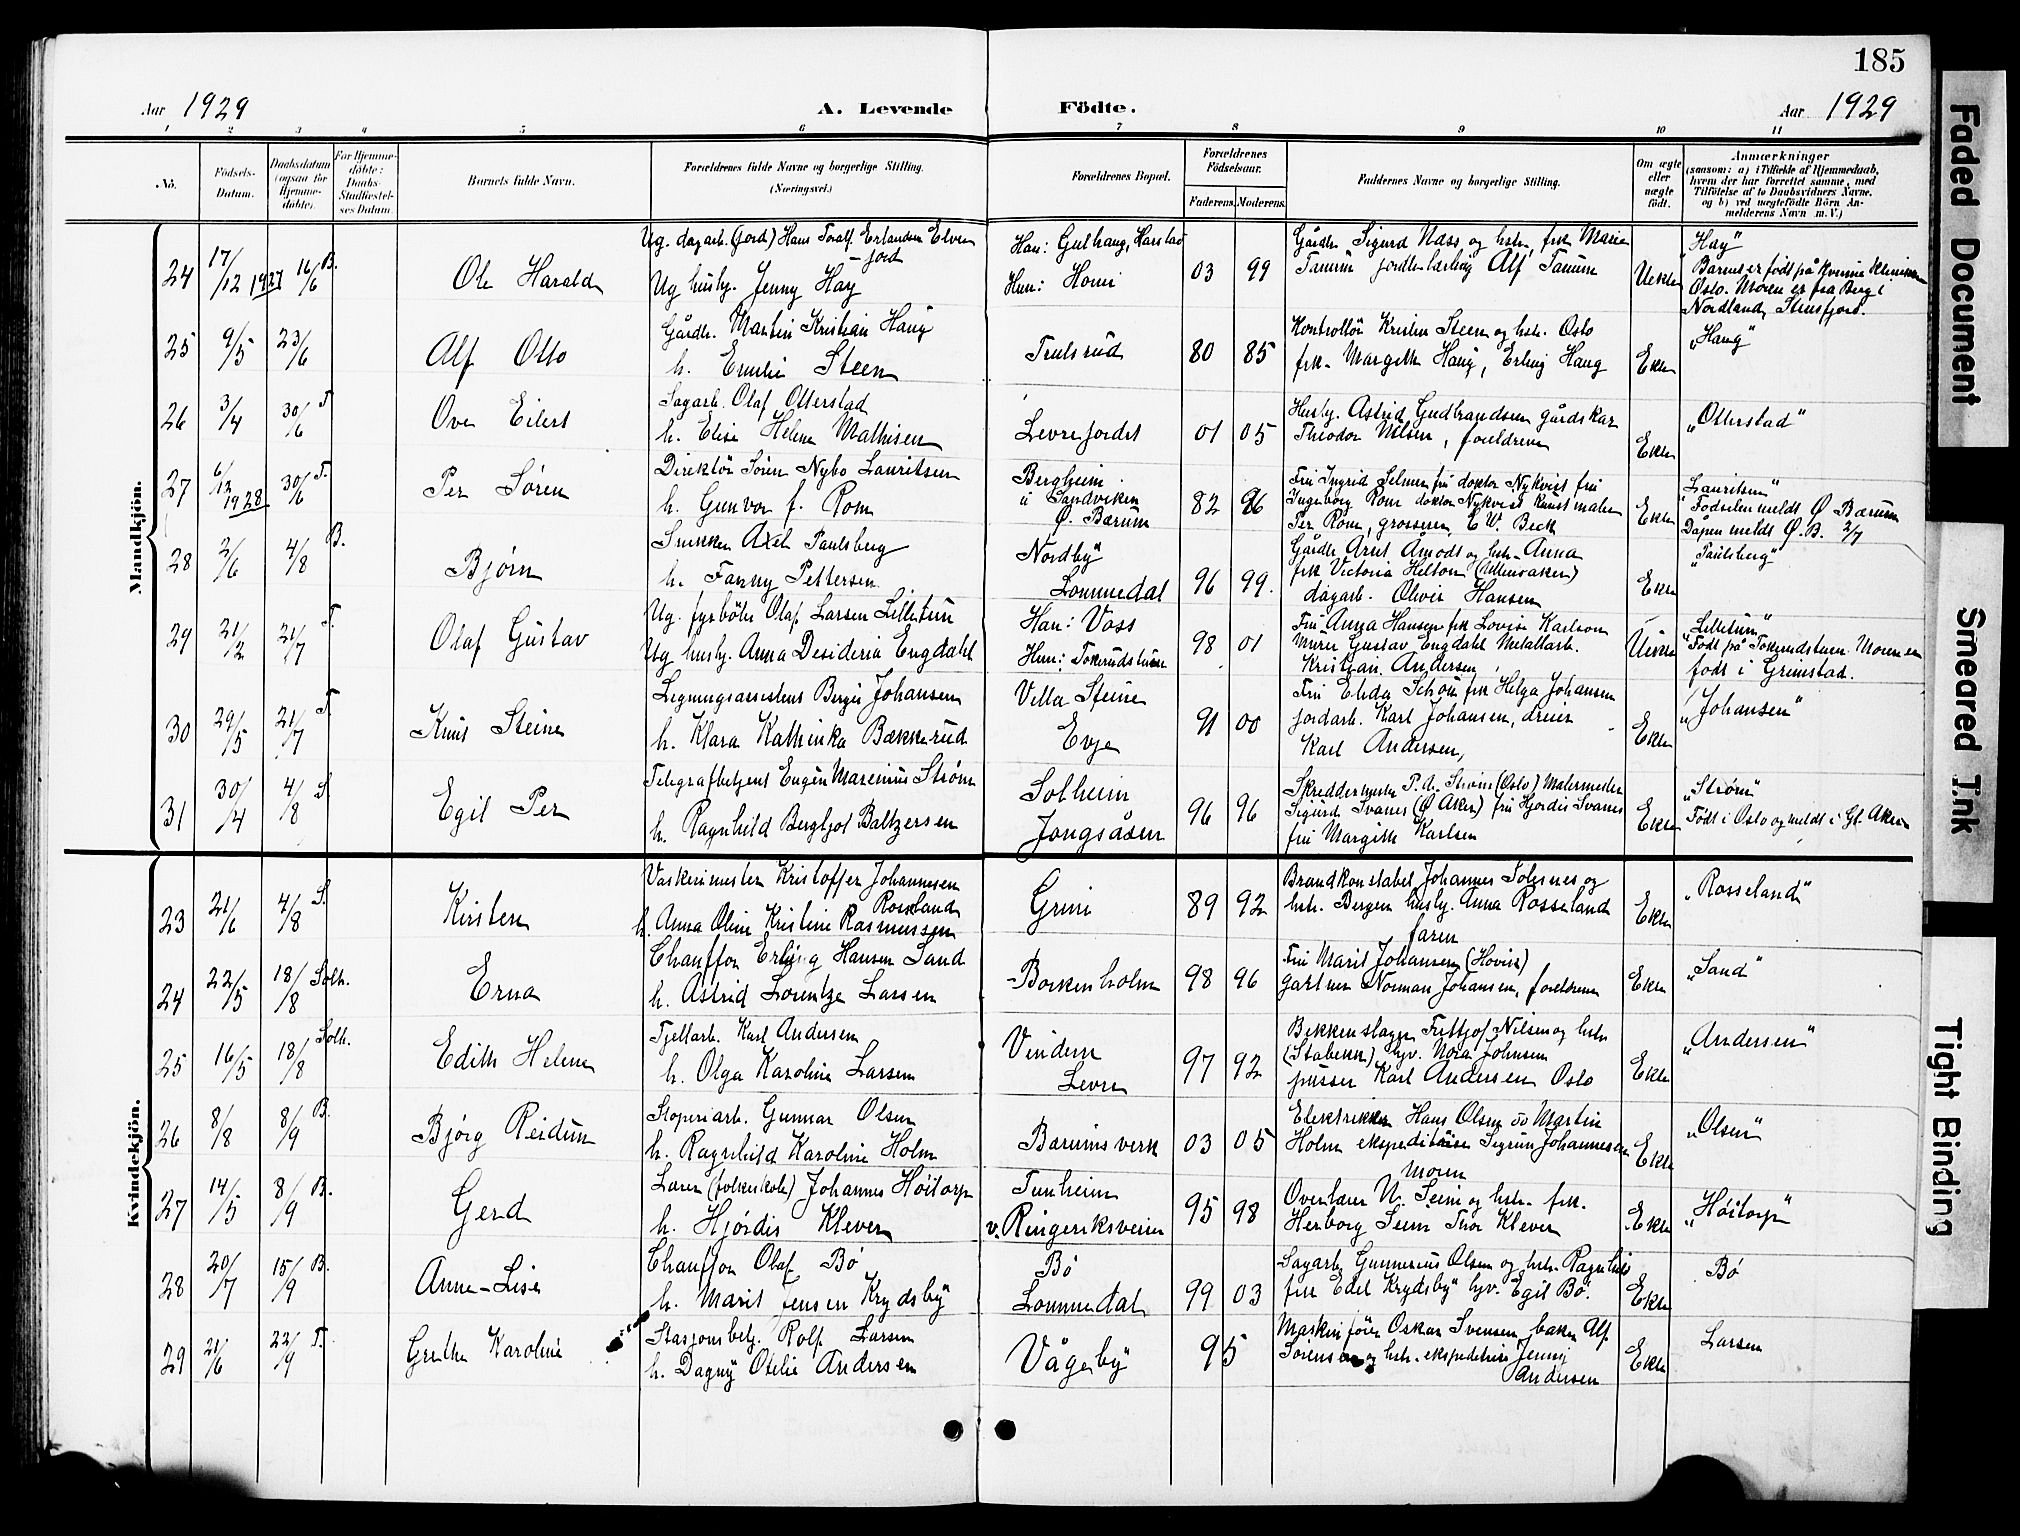 185
Aar 1929
A. Levende
Födte.
Aar 1929
1 2 3 4 5 6 7 8 9 10 11
No.
Födsels-
Datum.
Daabsdatum
(ogsaa for
Hjemme-
döbte).
For Hjemme-
döbte:
Daabs-
Stadfæstel-
ses Datum.
Barnets fulde Navn.
Forældrenes fulde Navne og borgerlige Stilling.
(Næringsvei.)
Forældrenes Bopæl.
Forældrenes
Födselsaar.
Faderens. Moderens.
Faddernes Navne og borgerlige Stilling.
Om ægte
eller
uægte
født.
Anmærkninger
(saasom: a) i Tilfælde af Hjemmedaab,
hvem der har forrettet samme, med
Tilföielse af to Daabsvidners Navne,
og b) ved uægtefödte Börn An-
melderens Navn m. V.)
Mandkjön.
24 17/12 1927 16/6 B.
Ole Harald
Ug. dagarb. (jord) Hans Toralf Erlandsen Elve-
jord
Ug husby. Jenny Hay
Han: Gulhaug, Harstad
Hun: Horni
03 99
Gårdbr. Sigurd Næss og hstr. frk Marie
Tanum Alf Tanum
Uekte
"Hay"
Barnet er født på kvinneklinikken
Oslo. Moren er fra Berg i
Nordland,
25 9/5 23/6
Alf Otto
Gårdbr. Martin Kristian Haug
h. Emilie Steen
Trulsrud
80 85
Kontrollör Kristen Steen og hstr. Oslo
frk. Margith Haug, Erling Haug
Ekte
"Haug"
26 3/4 30/6 T.
Ove Eilert
Sagarb. Olaf Otterstad
h. Elise Helene Mathisen
Levrejordet
01 05
Husby. Astrid Gudbrandsen gårdskar
Theodor Nilsen, foreldrene
Ekte
"Otterstad"
27 6/12 1928 30/6 T.
Per Søren
Direktör Sören Nybo Lauritsen
h. Gunvor f. Rom
Bergheim
Sandviken
Ø. Bærum
82 96
Fru Ingrid Selmer fru doktor Nykvist fru
Ingeborg Rom doktor Nykvist kunstmaler
Per Rom, grosserer E W. Beck
Ekte
"Lauritsen"
Fødselen meldt Ø Bærum
Dåpen meldt Ø. B. 2/7
28 2/6 4/8 B.
Bjørn
Snekker Axel Paulsberg
h. Fanny Pettersen
Nordby
Lommedal
96 99.
Gårdbr Arnt Åmodt og hstr. Anna
frk Victoria Helton
dagarb. Oliver Hansen
Ekte
"Paulsberg"
29 21/2 21/7 T.
Olaf Gustav
Ug. fyrbøter Olaf Larsen Lilletun
Ug husby. Anna Desideria Engdahl
Han: Voss
Hun: Tokerudstuen
98 01
Fru Anna Hansen frk Lovise Karlson
Murer Gustav Engdahl Metallarb.
Kristian Andersen
Uekte
"Lilletun"
Født på Tokerudstuen. Moren er
født i Grimstad.
30 29/5 21/7 T.
Knut Steine
Ligningsassistent Berger Johansen
h. Klara Kathinka Bækkerud
Villa Steine
Evje
91 00
Fru Elida Schou frk Helga Johansen
jordarb. Karl Johansen, dreier
Karl Andersen,
Ekte
"Johansen"
31 30/4 4/8 S.
Egil Per
Telegrafbetjent Eugen Marenius Strøm
h. Ragnhild Bergljot Baltzersen
Solheim
Jongsåsen
96 96
Skreddermester P. Strøm (Oslo) Malermester
Sigurd Svanes (Ø Aker) fru Hjordis Svanes
fru Margith Karlsen
Ekte
"Strøm"
Født i Oslo og meldt i Gl. Aker
Kvindekjön.
23 21/6 4/8 S.
Kirsten
Vaskerimester Kristoffer Johannesen
Rosseland
h. Anna Oline Kristine Rasmussen
Grini
89 92
Brandkonstabel Johannes Solesnes og
hstr. Bergen husby. Anna Rosseland
faren
Ekte
"Rosseland"
24 22/5 18/8 Solh.
Erna
Chauffør Erling Hansen Sand
h. Astrid Lorentze Larsen
Borkenholm
98 96
Fru Marit Johansen (Hovin)
gartner Norman Johansen, foreldrene
Ekte
"Sand"
25 16/5 18/8 Solh.
Edith Helene
Fjellarb. Karl Andersen
h. Olga Karoline Larsen
Vindern
Levre
97 92
Bekkenslager Frithjof Nilsen og hstr
(Stabekk) hjv. Nora Johnsen
pusser Karl Andersen Oslo
Ekte
"Andersen"
26 8/8 8/9 B.
Bjørg Reidun
Støperiarb. Gunnar Olsen
h. Ragnhild Karoline Holm
Bærums verk
03 05
Elektriker Hans Olsen og Martin
Holm ekspeditrise Sigrun Johannessen
Moren
Ekte
"Olsen"
27 14/5 8/9 B.
Gerd
Lærer (folkeskole) Johannes Höitorp
h. Hjördis Klever
Tunheim
v. Ringeriksveien
95 98
Overlærer N. Seim og hstr. frk.
Herborg Seim Thor Klever
Ekte
"Höitorp"
28 20/7 15/9 B.
Anne-Lise
Chauffør Olaf Bö
h. Marit Jensen Krydsby
Bö
Lommedal
99 03
Sagarb Gunnerius Olsen og hstr. Ragnhild
frk Edel Krydsby hjv. Egil Bö.
Ekte
Bö
29 21/6 22/9 T.
Grethe Karoline
Stasjonsbetj. Rolf Larsen
h. Dagny Otelie Andersen
Vågeby
95
Maskinfører Oskar Svensen, baker Alf
Sørensen og hstr. ekspeditrise Jenny
Andersen
Ekte
Larsen
Faded Document
Smeared Ink
Tight Binding